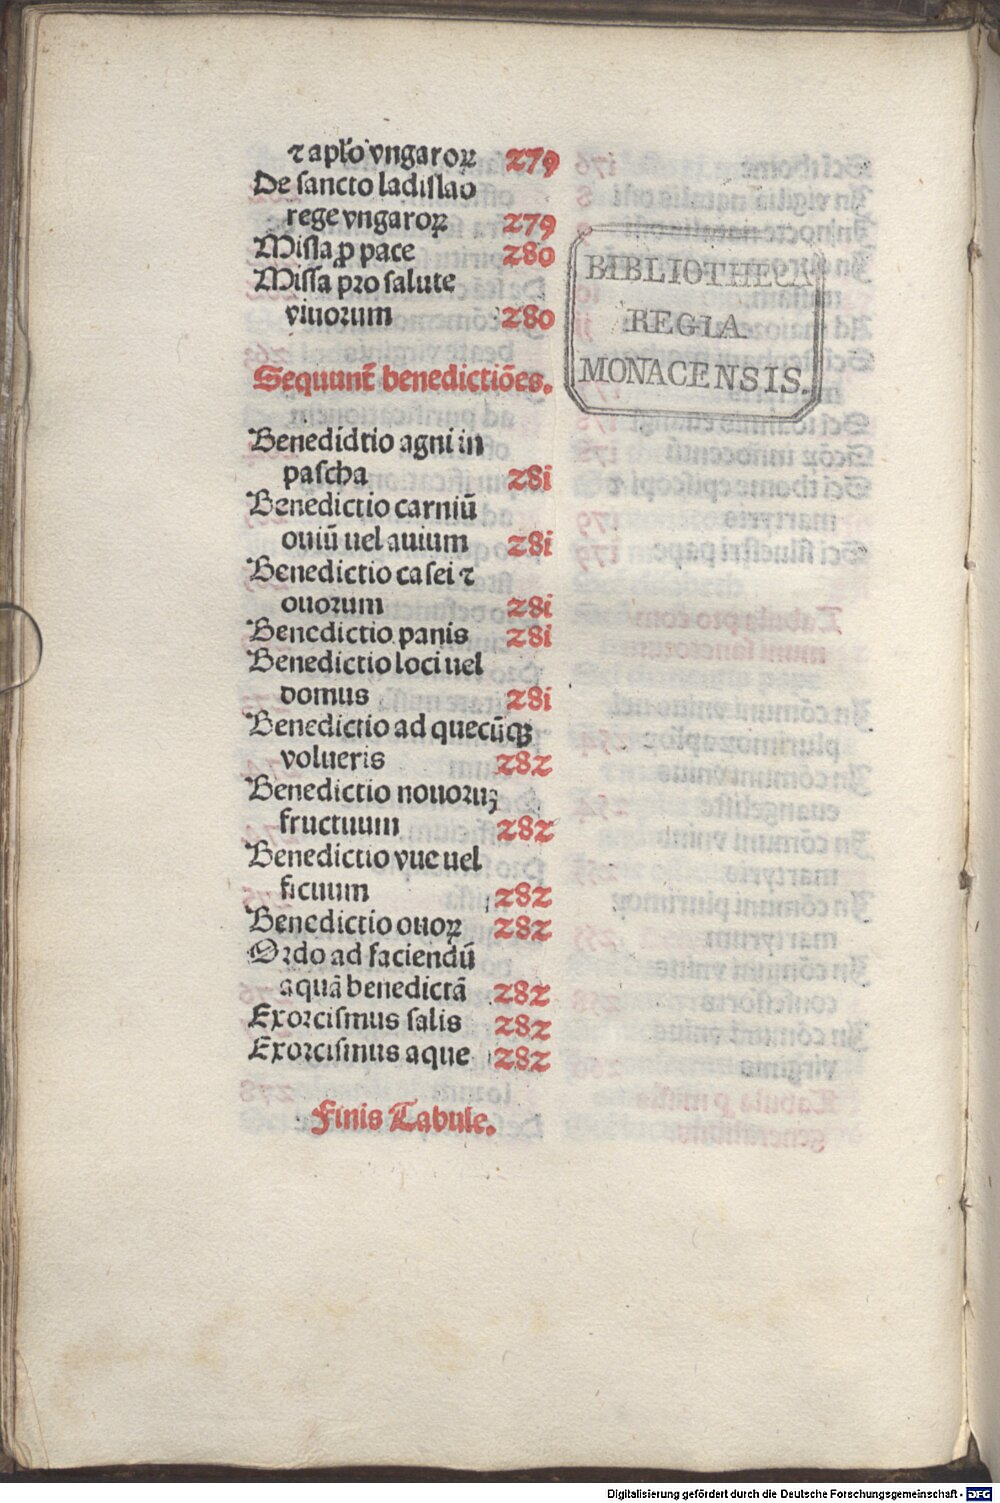 ⁊ aplo̅ vngaroꝝ 279
De sancto ladislao
rege vngaroꝝ 279
Missa ꝓ pace 280
Missa pro salute
viuorum 280
Sequunt̅ benedictiões.
Benedidtio agni in
pascha 28i
Benedictio carniū
ouiū uel auium 28i
Benedictio casei ⁊
ouorum 28i
Benedictio panis 28i
Benedictio loci uel
domus 28i
Benedictio ad quecūqꝫ
volueris 282
Benedictio nouoruꝫ
fructuum 282
Benedictio vue uel
ficuum 282
Benedictio ouoꝝ 282
Ordo ad faciendū
aquā benedictā 282
Exorcismus salis 282
Exorcismus aque 282
Finis Tabule.
BIBLIOTHECA
REGIA
MONACENSIS.
Digitalisierung gefördert durch die Deutsche Forschungsgemeinschaft - DFG